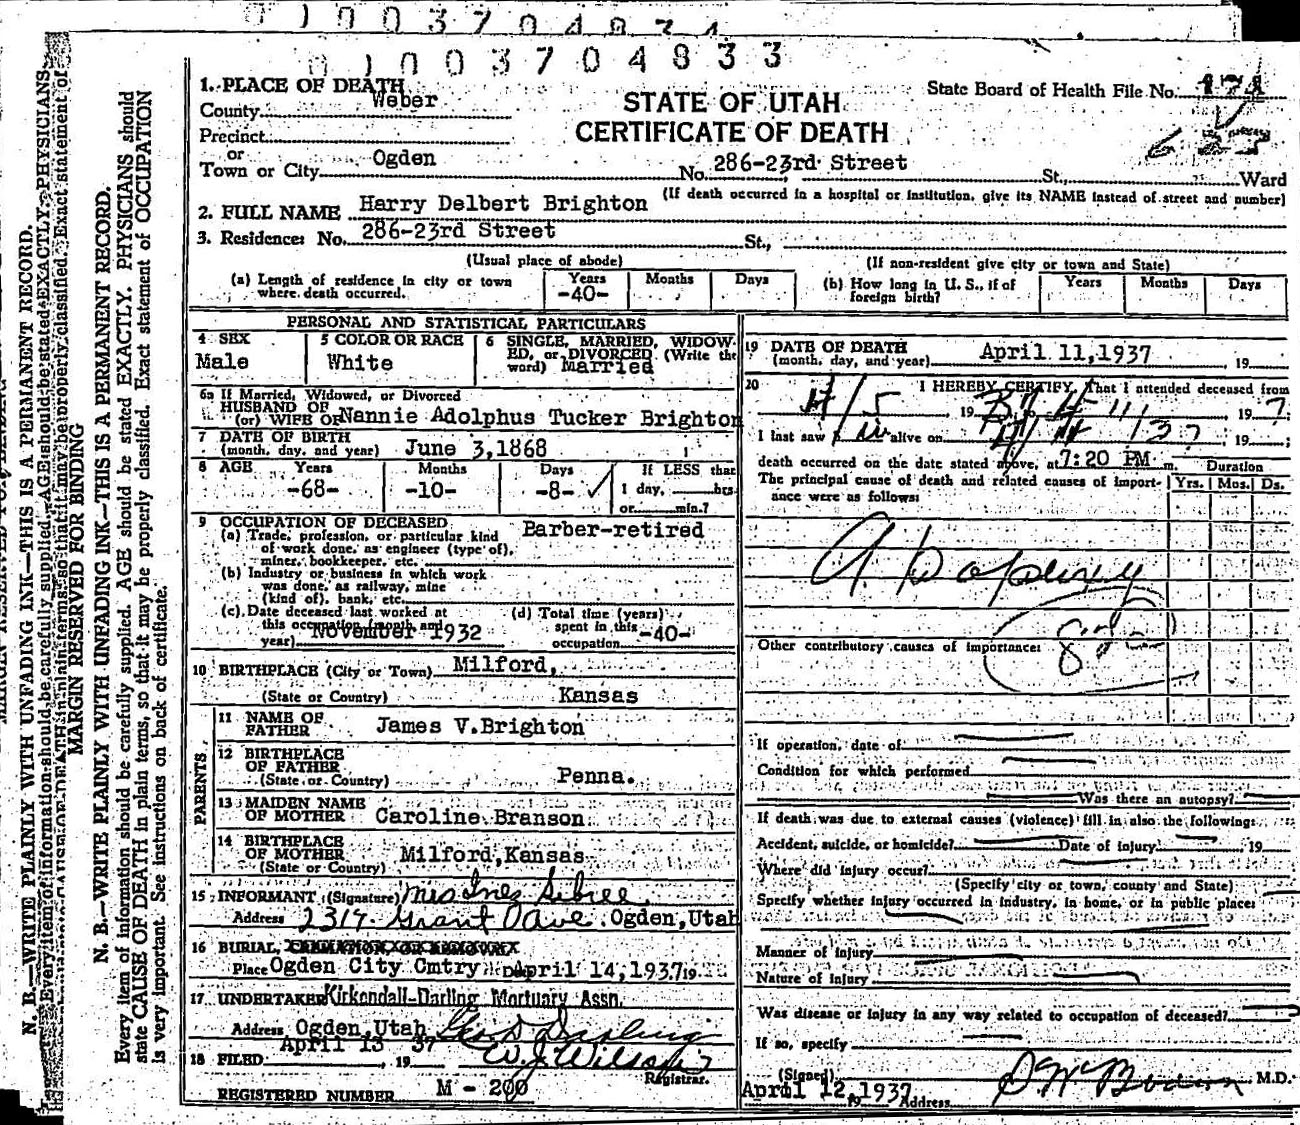 1003704833
1. PLACE OF DEATH
County Weber
Precinct
or
Town or City Ogden
STATE OF UTAH
CERTIFICATE OF DEATH
State Board of Health File No.
No. 286-23rd Street St., Ward
(If death occurred in a hospital or institution, give its NAME instead of street and number)
2. FULL NAME Harry Delbert Brighton
3. Residence: No. 286-23rd Street St.,
(Usual place of abode) (If non-resident give city or town and State)
(a) Length of residence in city or town where death occurred. Years -40- Months Days
(b) How long in U. S., if of foreign birth? Years Months Days
PERSONAL AND STATISTICAL PARTICULARS
4 SEX
Male
5 COLOR OR RACE
White
6 SINGLE, MARRIED, WIDOWED, or DIVORCED (Write the word) Married
6a If Married, Widowed, or Divorced
HUSBAND OF
(or) WIFE OF Nannie Adolphus Tucker Brighton
7 DATE OF BIRTH
(month, day, and year) June 3,1868
8 AGE Years Months Days If LESS than
-68- -10- -8- 1 day, hrs.
or min.?
9 OCCUPATION OF DECEASED
(a) Trade, profession, or particular kind of work done, as engineer (type of), miner, bookkeeper, etc. Barber-retired
(b) Industry or business in which work was done, as railway, mine (kind of), bank, etc.
(c) Date deceased last worked at this occupation (month and year) November 1932
(d) Total time (years) spent in this occupation -40-
10 BIRTHPLACE (City or Town) Milford,
(State or Country) Kansas
PARENTS
11 NAME OF FATHER James V.Brighton
12 BIRTHPLACE OF FATHER
(State or Country) Penna.
13 MAIDEN NAME OF MOTHER Caroline Branson
14 BIRTHPLACE OF MOTHER
(State or Country) Milford,Kansas
15 INFORMANT (Signature) Mrs Inez Sebree
Address 2314 Grant Ave. Ogden,Utah
16 BURIAL, CREMATION OR REMOVAL
Place Ogden City Cmtry Date April 14,1937 19
17 UNDERTAKER Kirkendall-Darling Mortuary Assn.
Address Ogden,Utah Geo D Darling
18 FILED April 13, 1937 W. J. Wilson
Registrar.
REGISTERED NUMBER M - 200
19 DATE OF DEATH
(month, day, and year) April 11,1937 19
20 I HEREBY CERTIFY, That I attended deceased from
4/5 1937, to 4 11 1937
I last saw him alive on 4/11/37, 19;
death occurred on the date stated above, at 7:20 PM m.
The principal cause of death and related causes of importance were as follows:
Duration
Yrs. Mos. Ds.
Other contributory causes of importance:
If operation, date of
Condition for which performed
Was there an autopsy?
If death was due to external causes (violence) fill in also the following:
Accident, suicide, or homicide? Date of injury 19
Where did injury occur?
(Specify city or town, county and State)
Specify whether injury occurred in industry, in home, or in public place:
Manner of injury
Nature of injury
Was disease or injury in any way related to occupation of deceased?
If so, specify
(Signed) M.D.
April 12,1937 19 Address
N. B.—WRITE PLAINLY WITH UNFADING INK—THIS IS A PERMANENT RECORD.
MARGIN RESERVED FOR BINDING
N. B.—WRITE PLAINLY WITH UNFADING INK—THIS IS A PERMANENT RECORD.
Every item of information should be carefully supplied. AGE should be stated EXACTLY. PHYSICIANS should
state CAUSE OF DEATH in plain terms, so that it may be properly classified. Exact statement of OCCUPATION
is very important. See instructions on back of certificate.